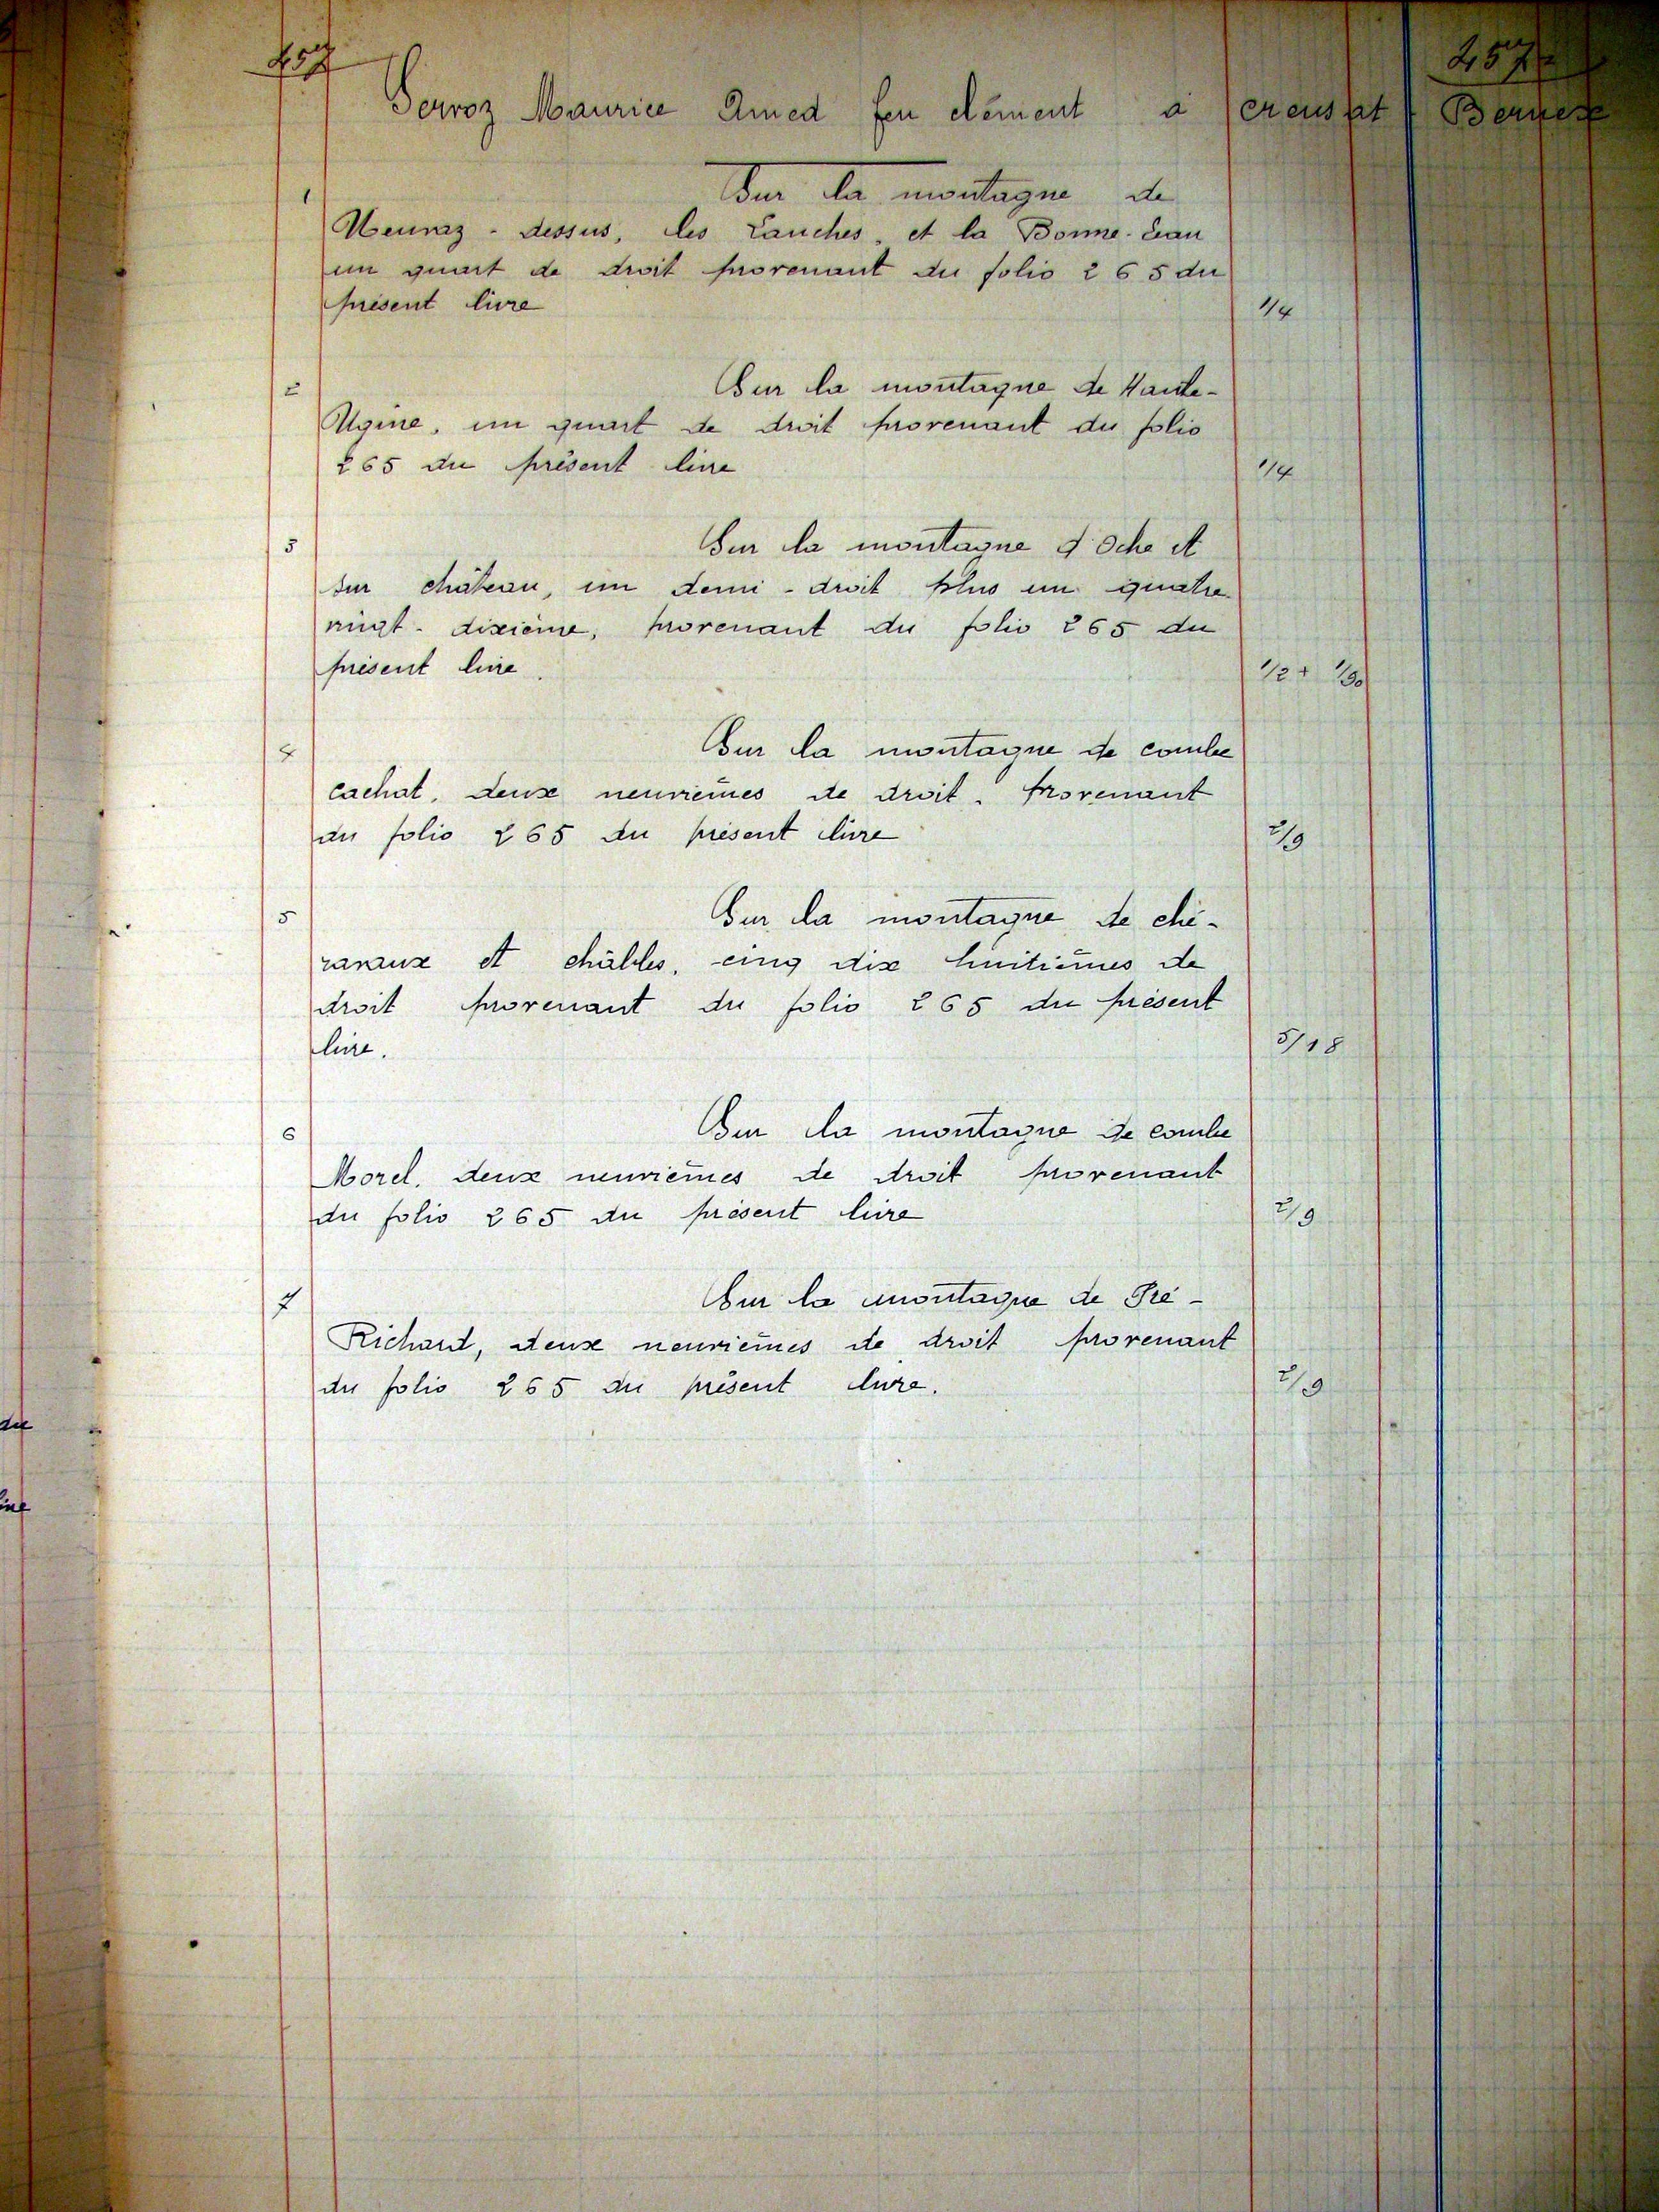 457 457
Servoz Maurice Amed feu clément à creusat Bernex
1 Sur la montagne de
Neuvaz - dessus, les Lanches, et la Bonne-Eau
un quart de droit provenant du folio 265 du
présent livre 1/4
2 Sur la montagne de Haute-
Ugine, un quart de droit provenant du folio
265 du présent livre 1/4
3 Sur la montagne d'Oche et
sur château, un demi-droit plus un quatre
vingt-dixième, provenant du folio 265 du
présent livre. 1/2 + 1/90
4 Sur la montagne de combe
cachat, deux neuvièmes de droit, provenant
du folio 265 du présent livre 2/9
5 Sur la montagne de ché-
ravaux et châbles, cinq dix huitièmes de
droit provenant du folio 265 du présent
livre. 5/18
6 Sur la montagne de combe
Morel, deux neuvièmes de droit provenant
du folio 265 du présent livre 2/9
7 Sur la montagne de Pré-
Richard, deux neuvièmes de droit provenant
du folio 265 du présent livre. 2/9
du